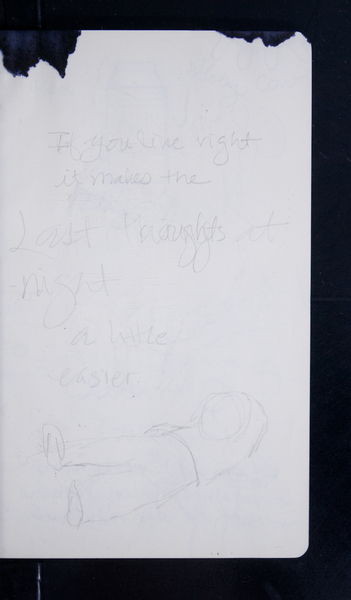 If you live right
it makes the
Last thoughts at
night
a little
easier